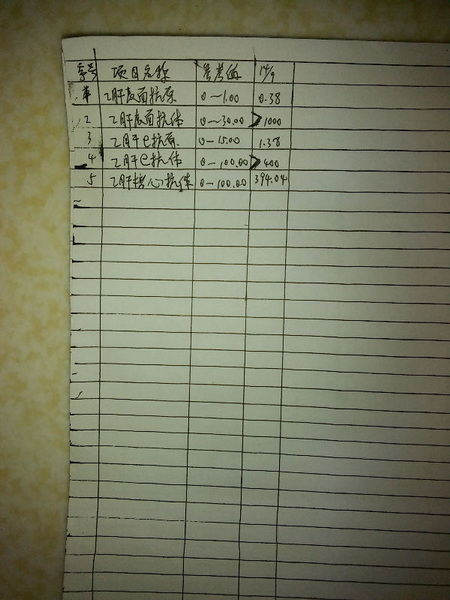 序号 项目名称 参考值 14/9
1 乙肝表面抗原 0~1.00 0.38
2 乙肝表面抗体 0~30.00 >1000
3 乙肝e抗原 0~15.00 1.38
4 乙肝e抗体 0~100.00 >400
5 乙肝核心抗体 0~100.00 394.04